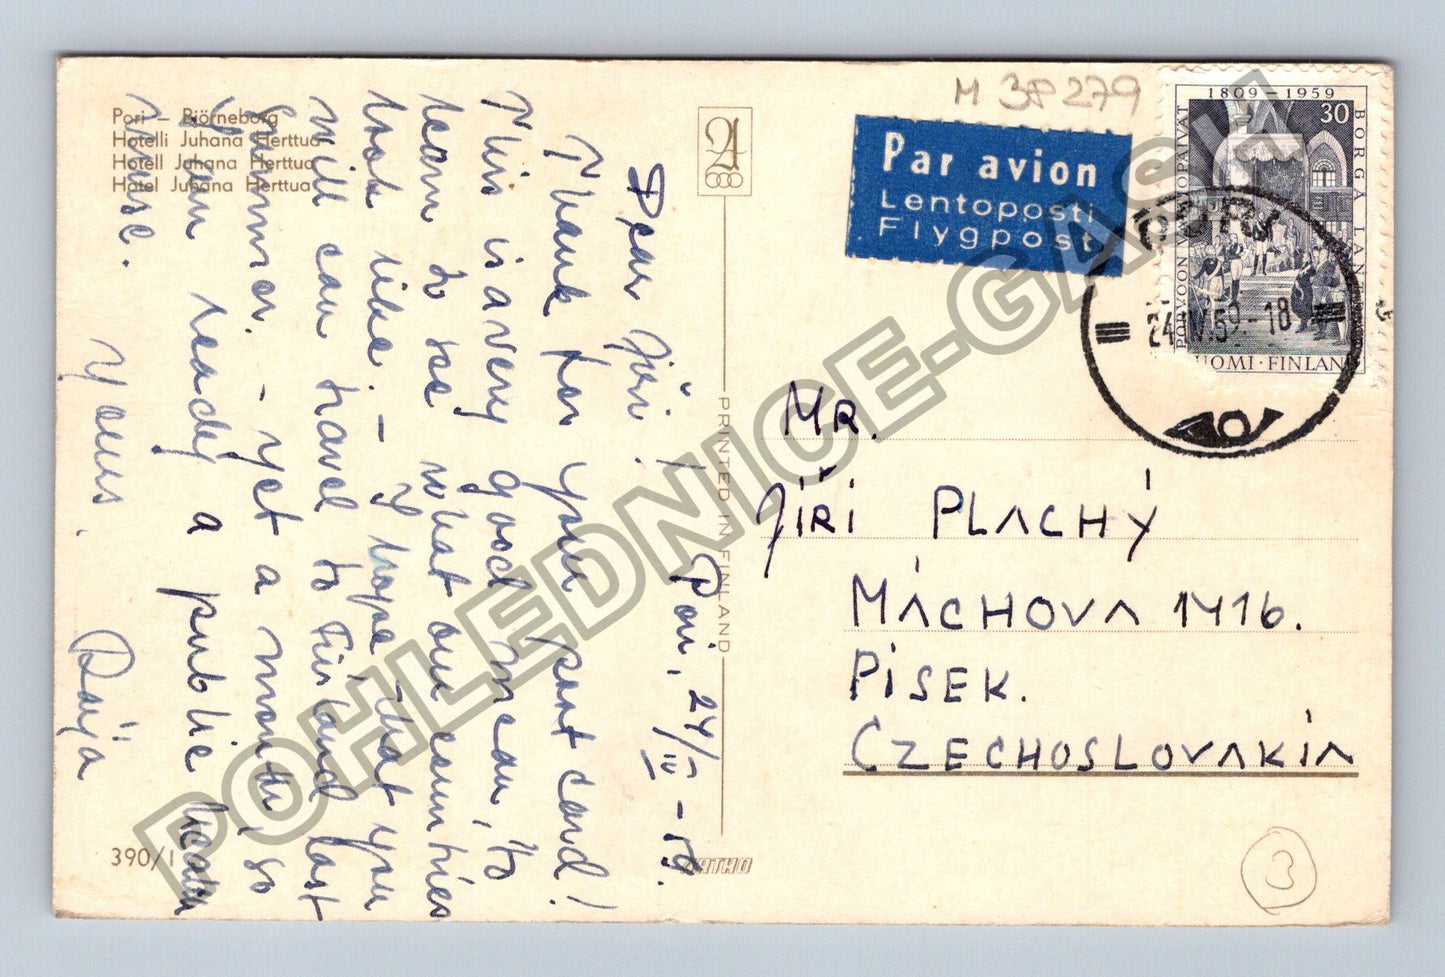 Pori – Björneborg
Hotelli Juhana Herttua
Hotell Juhana Herttua
Hotel Juhana Herttua
Pori, 24/IV – 59.
Dear Jiří!
Thank for your post card!
This is a very good mean, to
learn to see what our countries
look like. – I hope that you
will can travel to Finland last
summer. – yet a month, so
I am ready a public health
nurse.
Yours.
Raija
390/1
PRINTED IN FINLAND
M 38279
Par avion
Lentoposti
Flygpost
1809 – 1959
30
PORVOON VALTIOPÄIVÄT
BORGÅ LANT
SUOMI · FINLAND
PORI
24.IV.59.-18
MR.
JIŘÍ PLACHÝ
MÁCHOVA 1416.
PÍSEK.
CZECHOSLOVAKIA
3
POHLEDNICE-GASH